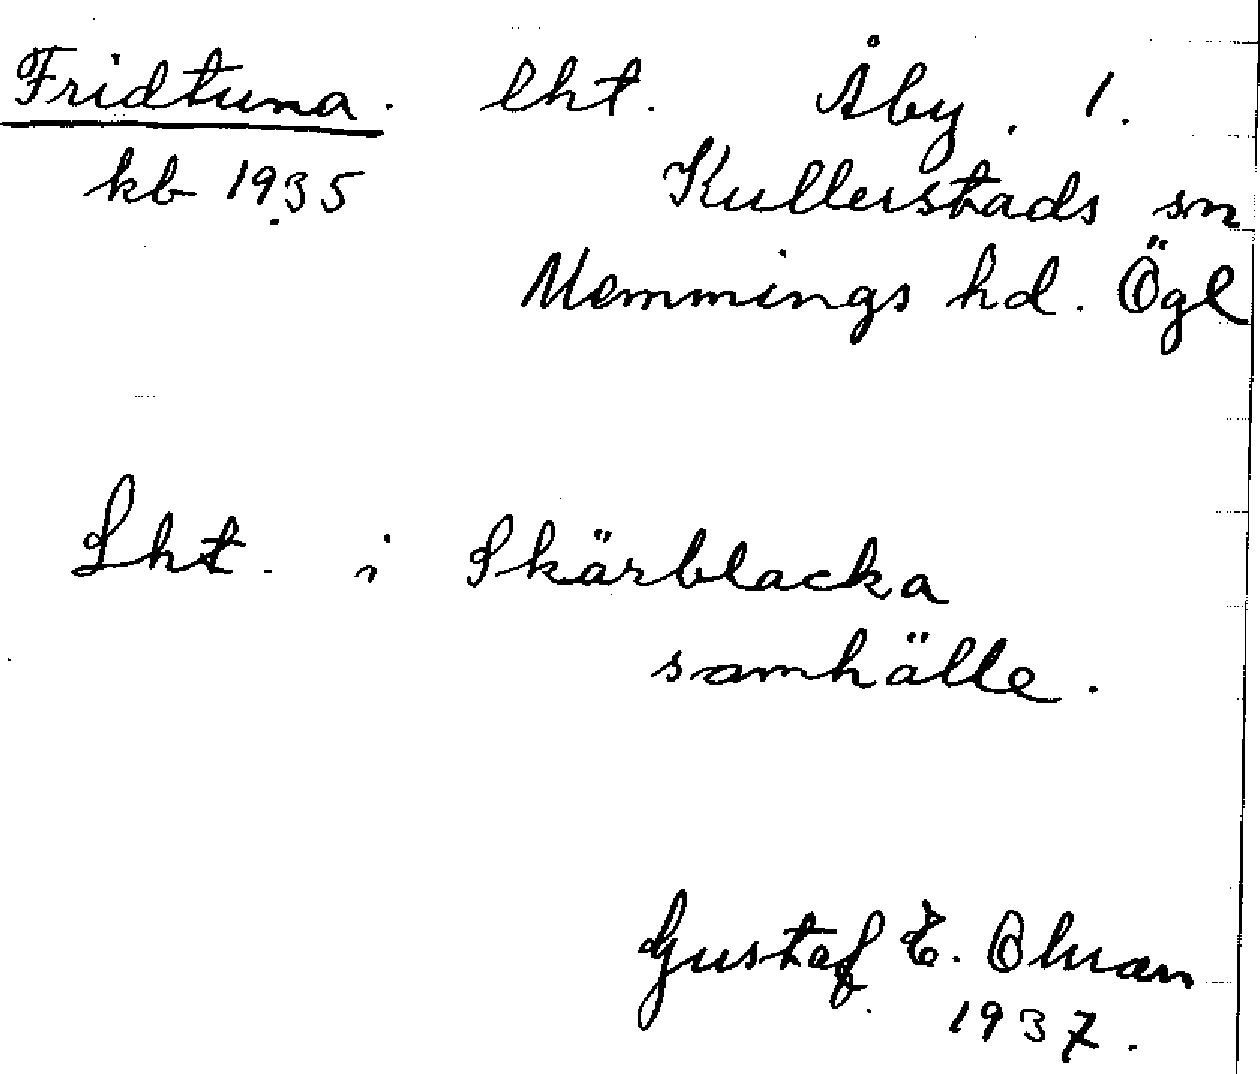 Fridtuna. lht. Åby. 1.
kb 1935 Kullerstads sn
Memmings hd. Ögl
Lht. i Skärblacka
samhälle.
Gustaf E.
1937.